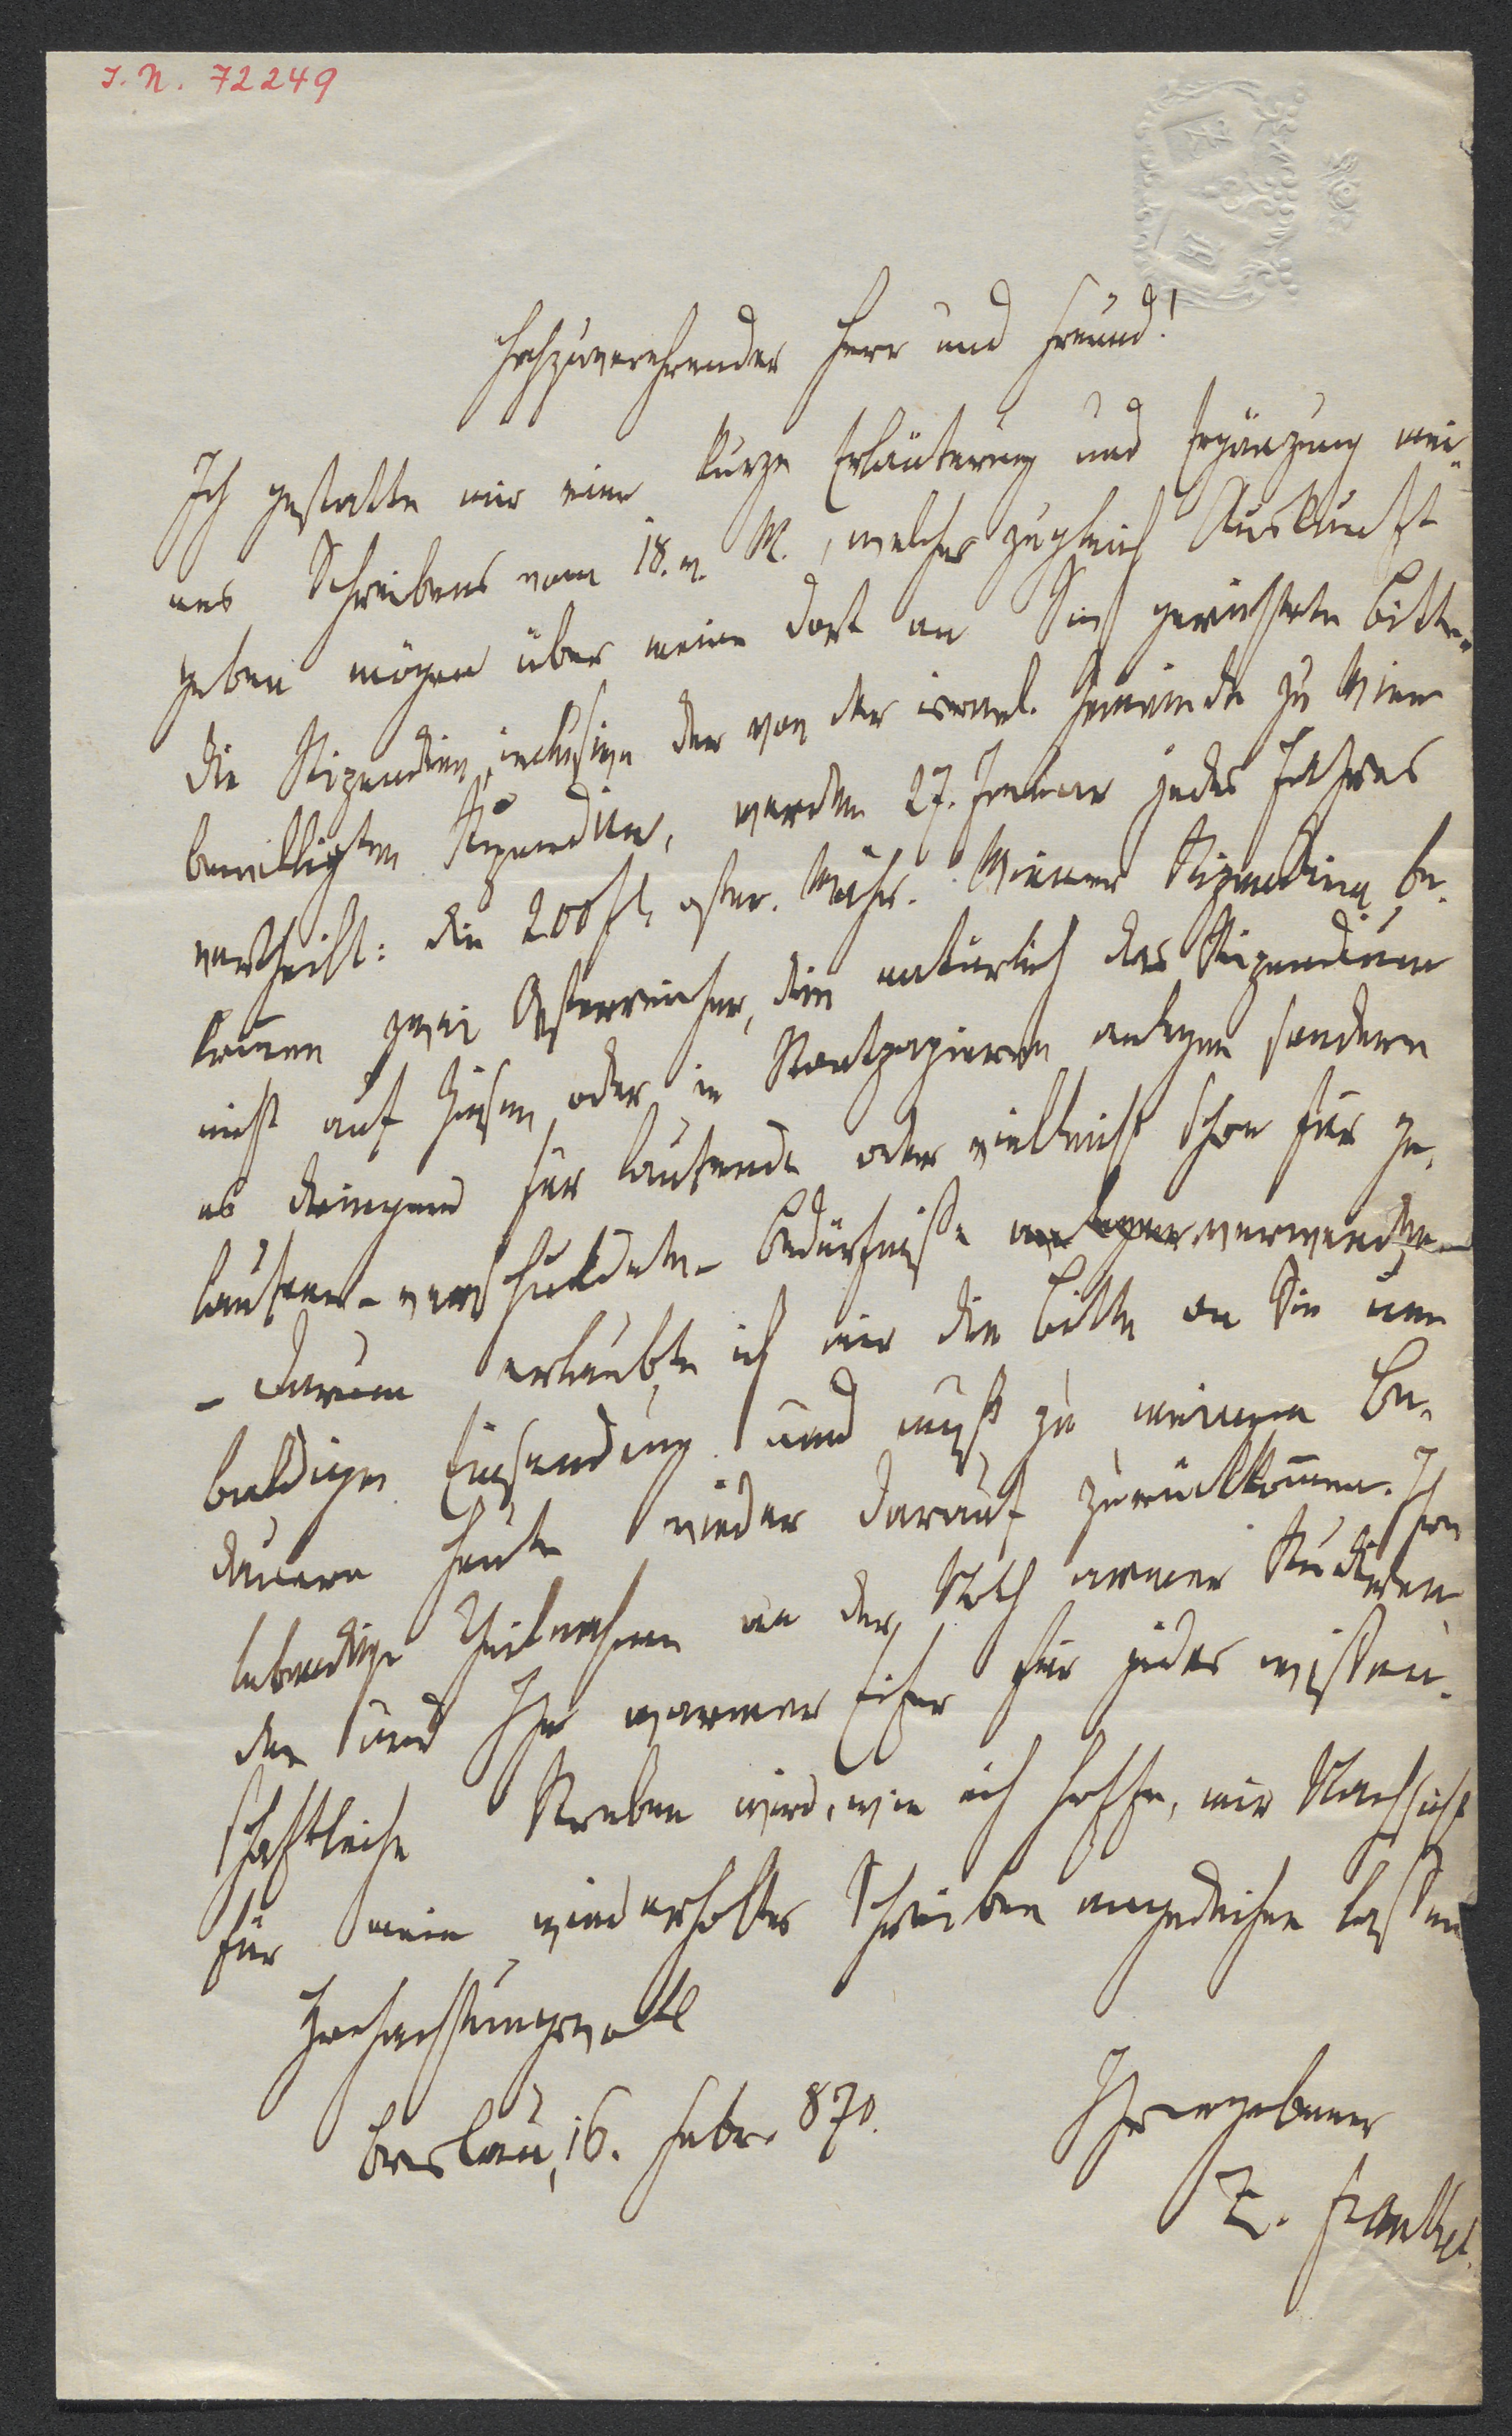 I. N. 72249
Hochzuverehrender Herr und Freund!
Ich gestatte mir eine kurze Erläuterung und Ergänzung mei-
nes Schreibens vom 18. v. M., welches zugleich Auskunft
geben mögen über meine dort an Sie gerichtete Bitte.
Die Stipendien, inclusive der von der israel. Gemeinde zu Wien
bewilligten Stipendien, werden 27. Januar jedes Jahres
vertheilt: die 200 fl. oster. Währ. Wiener Stipendien be-
kommen zwei Österreicher, die natürlich das Stipendium
nicht auf Zinsen oder in Staatspapieren anlegen sondern
es dringend für laufende oder vielleicht schon für ge-
laufene - verschuldete - Bedürfnisse verwenden
- Darum erlaubte ich mir die Bitte an Sie um
baldige Einsendung und muß zu meinem Be-
dauern heute wieder darauf zurückkommen. Ihre
lebendige Theilnahme an der Noth armer Studiren-
den und Ihr warmer Eifer für jedes wissen-
schaftliche Streben wird, wie ich hoffe, mir Nachsicht
für mein wiederholtes Schreiben angedeihen lassen
Hochachtungsvoll
Breslau, 16. Febr. 870.
Ihr ergebener
Z. Frankel.